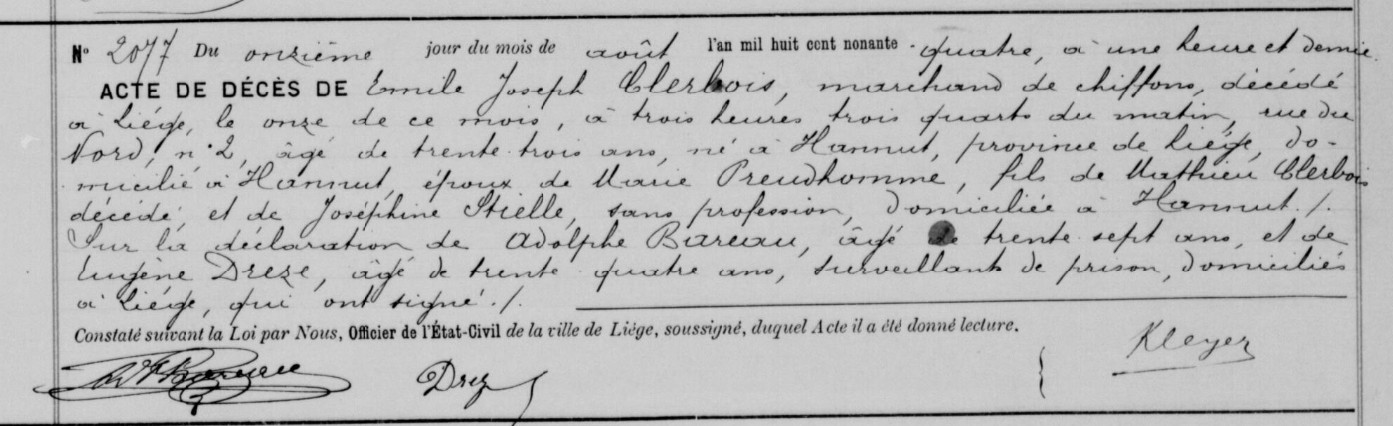 N° 2077 Du onzième jour du mois de août l'an mil huit cent nonante-quatre, à une heure et demie.
ACTE DE DÉCÈS DE Emile Joseph Clerbois, marchand de chiffons, décédé
à Liége, le onze de ce mois, à trois heures trois quarts du matin, rue du
Nord, n° 2, âgé de trente-trois ans, né à Hannut, province de Liége, do-
micilié à Hannut, époux de Marie Preudhomme, fils de Mathieu Clerbois
décédé, et de Joséphine Stielle, sans profession, domiciliée à Hannut ./.
Sur la déclaration de Adolphe Bareau, âgé de trente-sept ans, et de
Eugène Dreze, âgé de trente-quatre ans, surveillants de prison, domiciliés
à Liége, qui ont signé ./.
Constaté suivant la Loi par Nous, Officier de l'État-Civil de la ville de Liége, soussigné, duquel Acte il a été donné lecture.
Kleyer
Bareau Drez